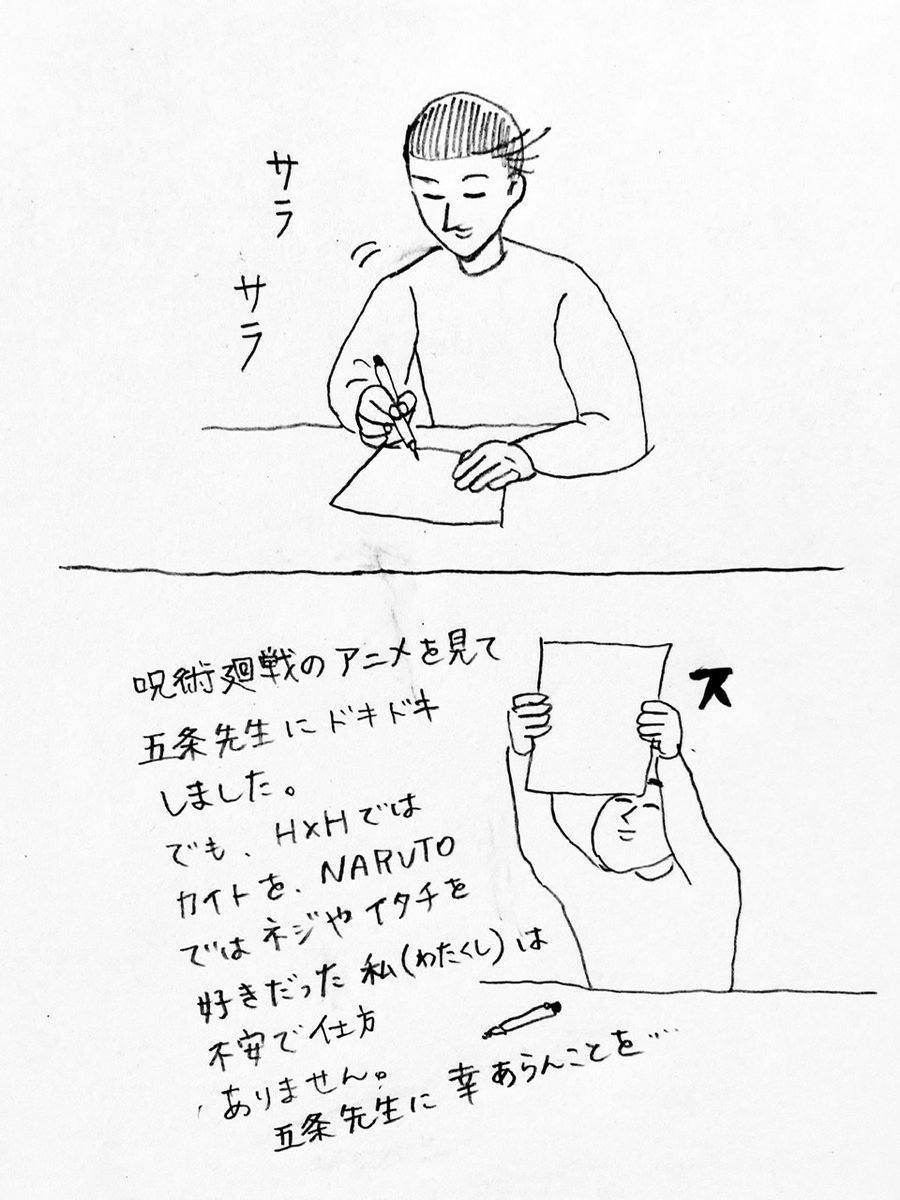 サラ
サラ
呪術廻戦のアニメを見て
五条先生にドキドキ
しました。
でも、H×Hでは
カイトを、NARUTO
ではネジやイタチを
好きだった私(わたくし)は
不安で仕方
ありません。
五条先生に幸あらんことを…
ス